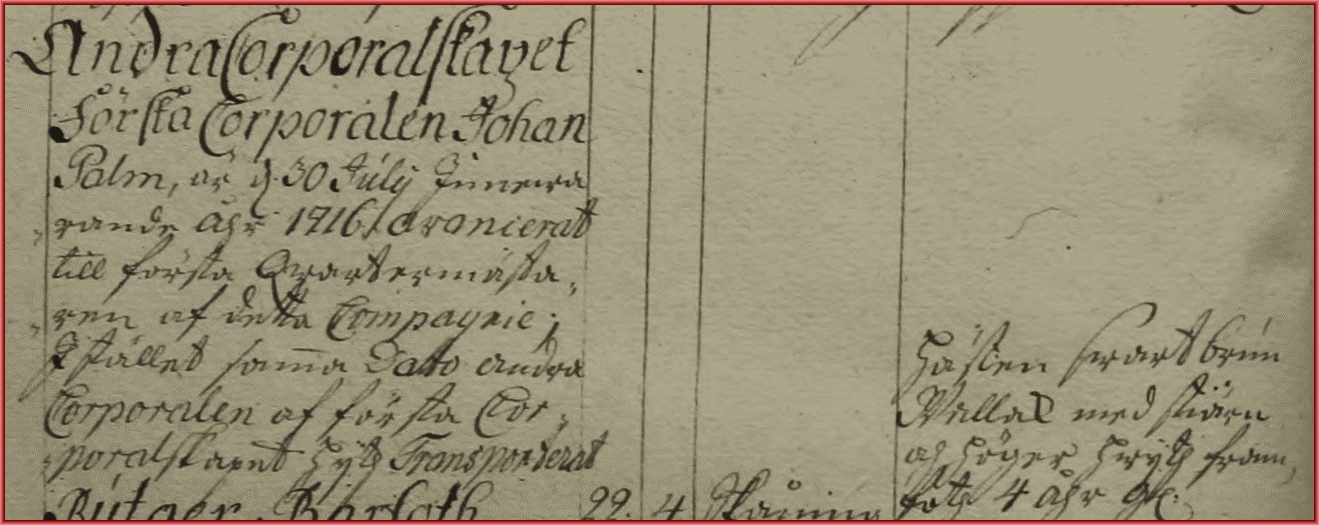 Andra Corporalskapet
Första Corporalen Johan
Palm, är d. 30 Julij Innewa
rande åhr 1716 avancerat
till första Qvartermästa,
ren af detta Compagnie;
I stället samma Dato andra
Corporalen af första Cor-
poralskapet hijt Transporterat
Rutger Barfoth 22. 4 Skåning
hästen swart brun
Wallack med stiärn
och höger hwijt fram,
foth 4 åhr